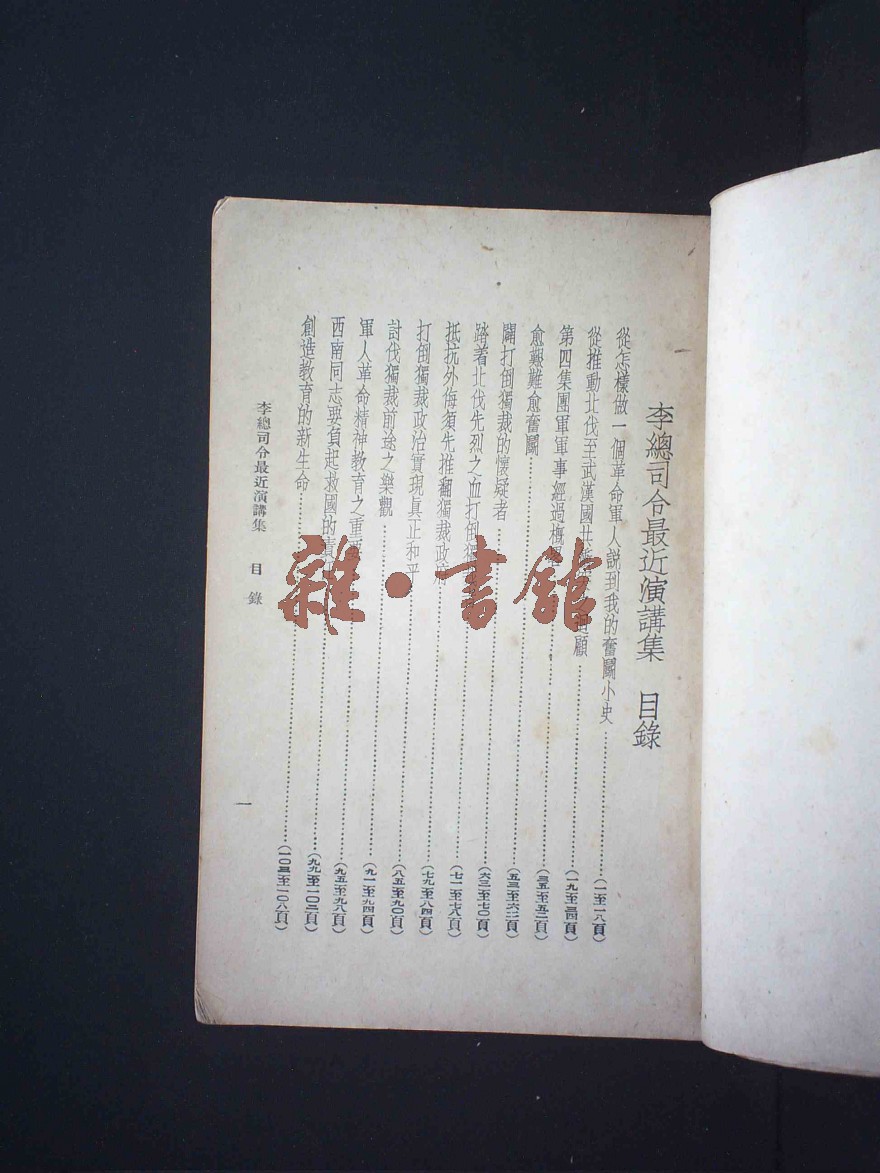 李總司令最近演講集 目錄
從怎樣做一個革命軍人說到我的奮鬭小史…………(一至一八頁)
從推動北伐至武漢國共 顧…………(一九至三四頁)
第四集團軍軍事經過概…………(三五至五二頁)
愈艱難愈奮鬭…………(五三至六二頁)
闢打倒獨裁的懷疑者…………(六三至七〇頁)
踏着北伐先烈之血打倒獨…………(七一至七八頁)
抵抗外侮須先推翻獨裁政府…………(七九至八四頁)
打倒獨裁政治實現眞正和平…………(八五至九〇頁)
討伐獨裁前途之樂觀…………(九一至九四頁)
軍人革命精神教育之重要…………(九五至九八頁)
西南同志要負起救國的責…………(九九至一〇三頁)
創造教育的新生命…………(一〇三至一〇六頁)
李總司令最近演講集 目錄
一
雜·書館